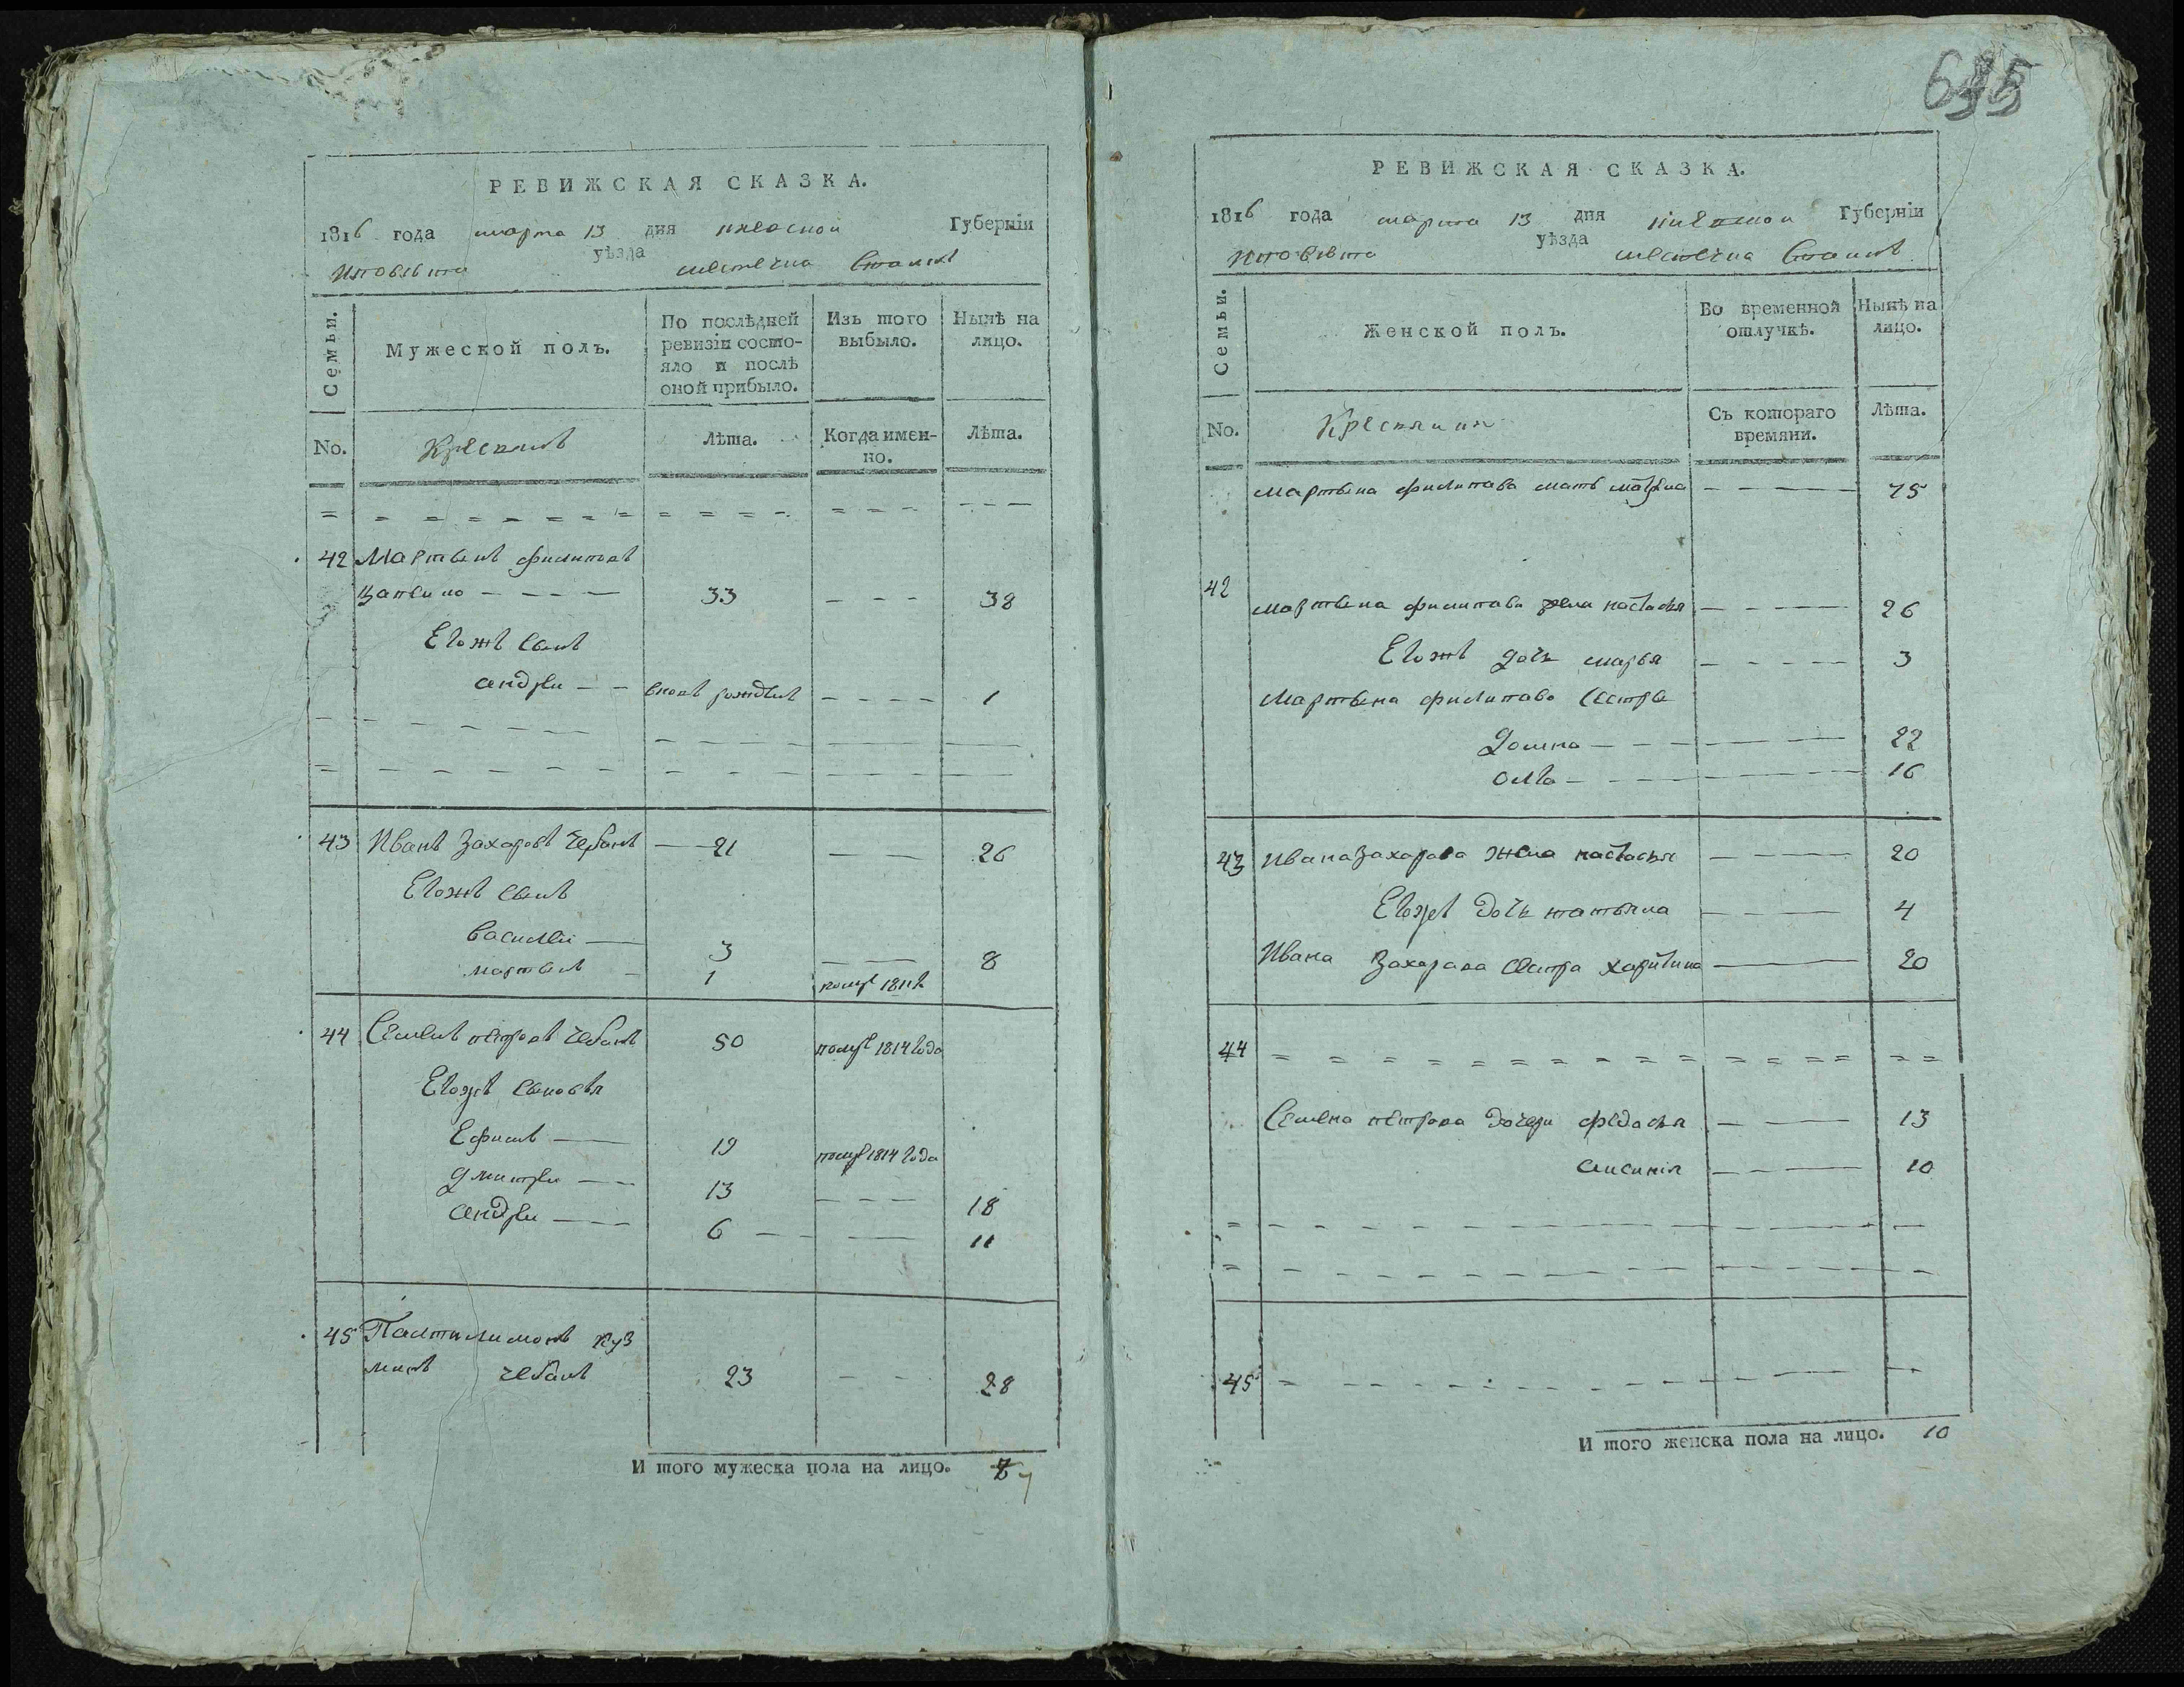 РЕВИЖСКАЯ СКАЗКА.
1816 года марта 13 дня киевской Губерніи
уѣзда местечка
Семьи.
Мужеской полъ.
По послѣдней ревизіи состояло и послѣ оной прибыло.
Изъ того выбыло.
Нынѣ на лицо.
No.
Лѣта.
Когда именно.
Лѣта.
42 Мартынъ филиповъ
33 - - - 38
Егожъ сынъ
андрей - - вновь рожденъ - - - - 1
43 Иванъ Захаровъ - - 21 - - 26
Егожъ сынъ
василей — 3 — 8
мартынъ - 1 помре 1811г
44 Семенъ петровъ чебанъ 50 помре 1814 года
Егожъ сыновья
Ефимъ — 19 помре 1814 года
дмитрей — 13 - - - 18
андрей — 6 - - — 11
45 Пантилимонъ куз
минъ чебанъ 23 - - 28
И того мужеска пола на лицо. 7
РЕВИЖСКАЯ СКАЗКА.
1816 года марта 13 дня киевской Губерніи
уѣзда местечка
Семьи.
Женской полъ.
Во временной отлучкѣ.
Нынѣ на лицо.
No.
Съ котораго времяни.
Лѣта.
мартына филипава мать 75
42
мартына филипава жена настасья - - - - 26
Егожъ дочь марья - - - - 3
Мартына филипава сестры
Домна - - - 22
олга - - - 16
43 Ивана Захарава жена настасья - - - 20
Егожъ дочь татьяна - - - 4
Ивана Захарава сестра харитина — 20
44
Семена петрова дочери федосья - — 13
аксинія - - - 10
45
И того женска пола на лицо. 10